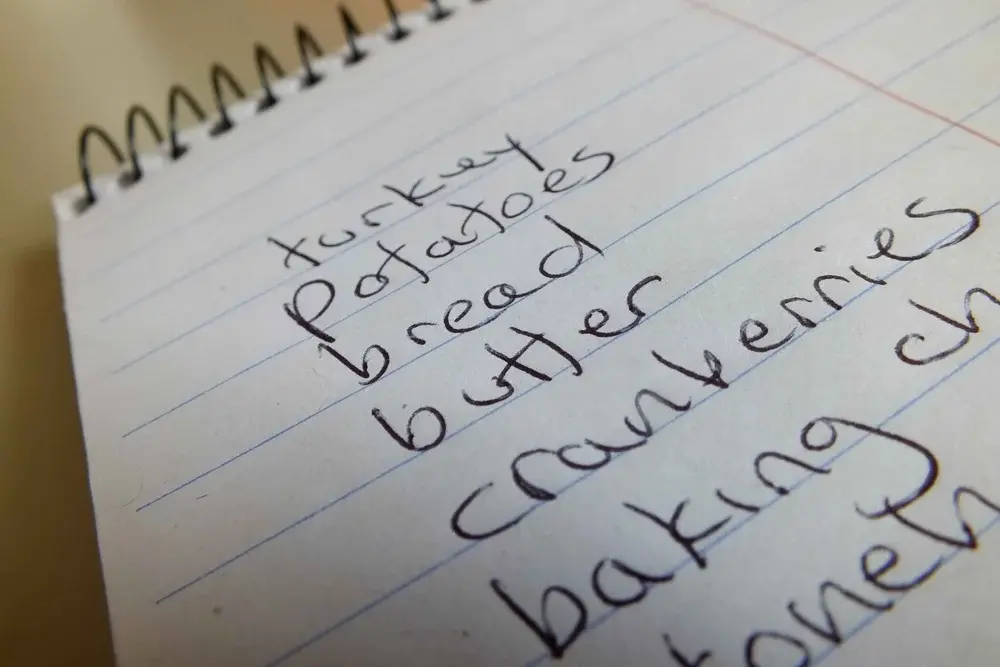 turkey
potatoes
bread
butter
cranberries
baking ch